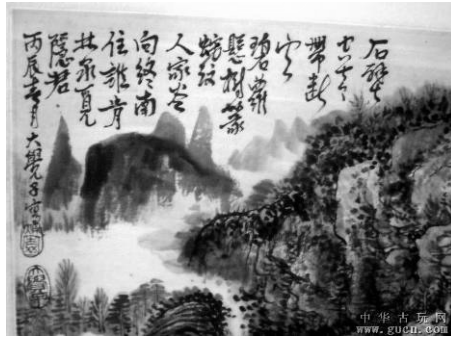 石壁
帶斷
碧蘿
懸樹篆
紋
人家
向終南
住誰肯
林泉覓
隱君
丙辰春月大覺子寫
中华古玩网
www.gucn.com